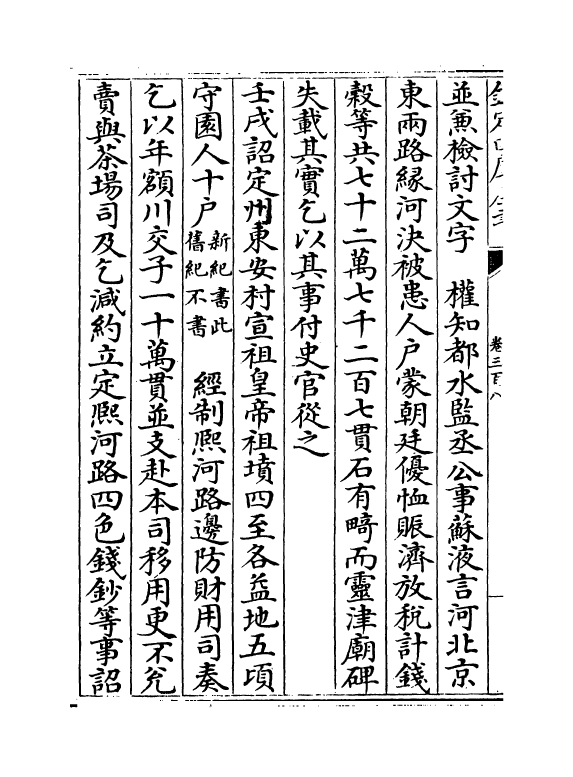 卷三百八
並兼檢討文字　權知都水監丞公事蘇液言河北京
東兩路緣河決被患人户蒙朝廷優恤賑濟放稅計錢
榖等共七十二萬七千二百七貫石有畸而靈津廟碑
失載其實乞以其事付史官從之
壬戌詔定州東安村宣祖皇帝祖墳四至各益地五頃
守園人十户新紀書此舊紀不書　經制熙河路邊防財用司奏
乞以年額川交子一十萬貫並支赴本司移用更不兊
賣與茶場司及乞減約立定熈河路四色錢鈔等事詔